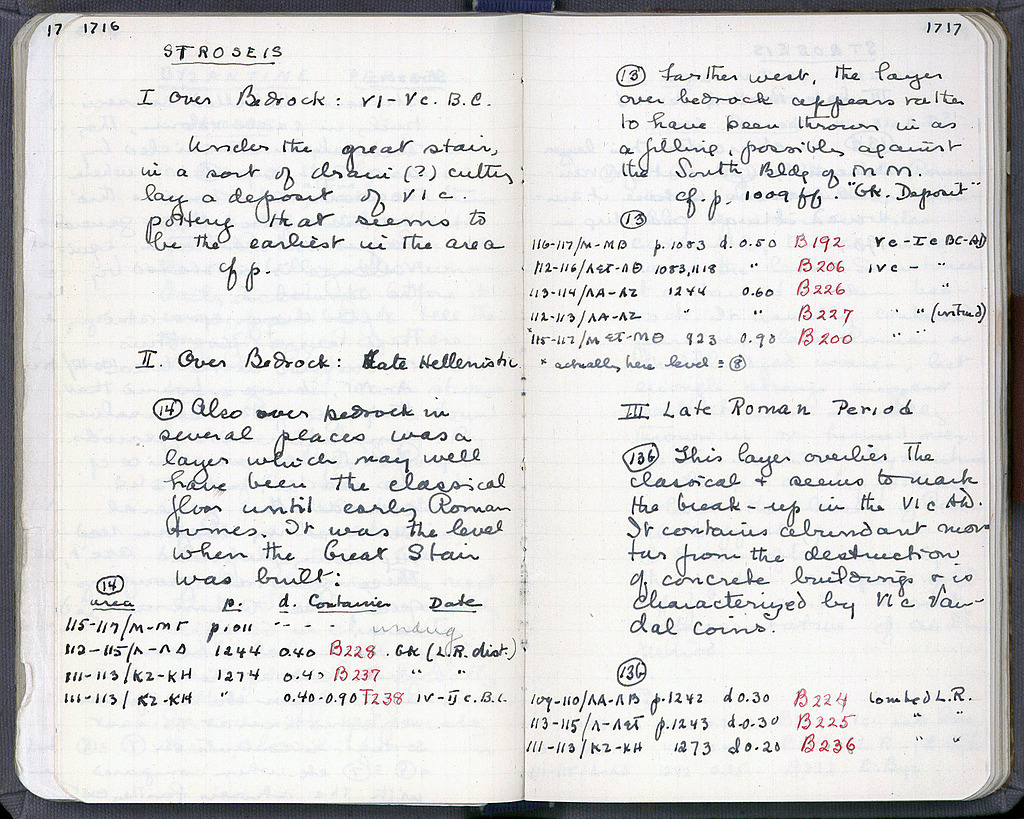 17 1716
STROSEIS
I Over Bedrock: VI-Vc. B.C.
Under the great stair,
in a sort of drain (?) cutting
lay a deposit of VI c.
pottery that seems to
be the earliest in the area
cf p.
II. Over Bedrock: Late Hellenistic
(14) Also over bedrock in
several places was a
layer which may well
have been the classical
floor until early Roman
times. It was the level
when the Great Stair
was built:
(14)
area p. d. Container Date
115-117/M-MΓ p. 1011 - - - undug
112-115/Λ-ΛΔ 1244 0.40 B228 GK (L.R. dist.)
111-113/KZ-KH 1274 0.40 B237 " "
111-113/KZ-KH " 0.40-0.90 T238 IV-IIc. B.C.
1717
(13) Farther west, the layer
over bedrock appears rather
to have been thrown in as
a filling, possibly against
the South Bldg of M M.
cf. p. 1009 ff. "GK. Deposit"
(13)
116-117/M-MB p. 1083 d. 0.50 B192 Vc-Ic BC-AD
112-116/ΛΣΤ-ΛΘ 1083,1118 " B206 IVc - "
113-114/ΛA-ΛZ 1244 0.60 B226 "
112-113/ΛA-ΛZ " " B227 " (intrud)
*115-117/MΣΤ-MΘ 923 0.90 B200 " "
* actually here level = (8)
III Late Roman Period
(136) This layer overlies the
classical + seems to mark
the break-up in the VI c AD.
It contains abundant mor-
tar from the destruction
of concrete buildings + is
characterized by VI c Van-
dal coins.
(136)
109-110/ΛA-ΛB p. 1242 d 0.30 B224 combed L.R.
113-115/Λ-ΛΣΤ p. 1243 d 0.30 B225 " "
111-113/KZ-KH 1273 d 0.20 B236 " "